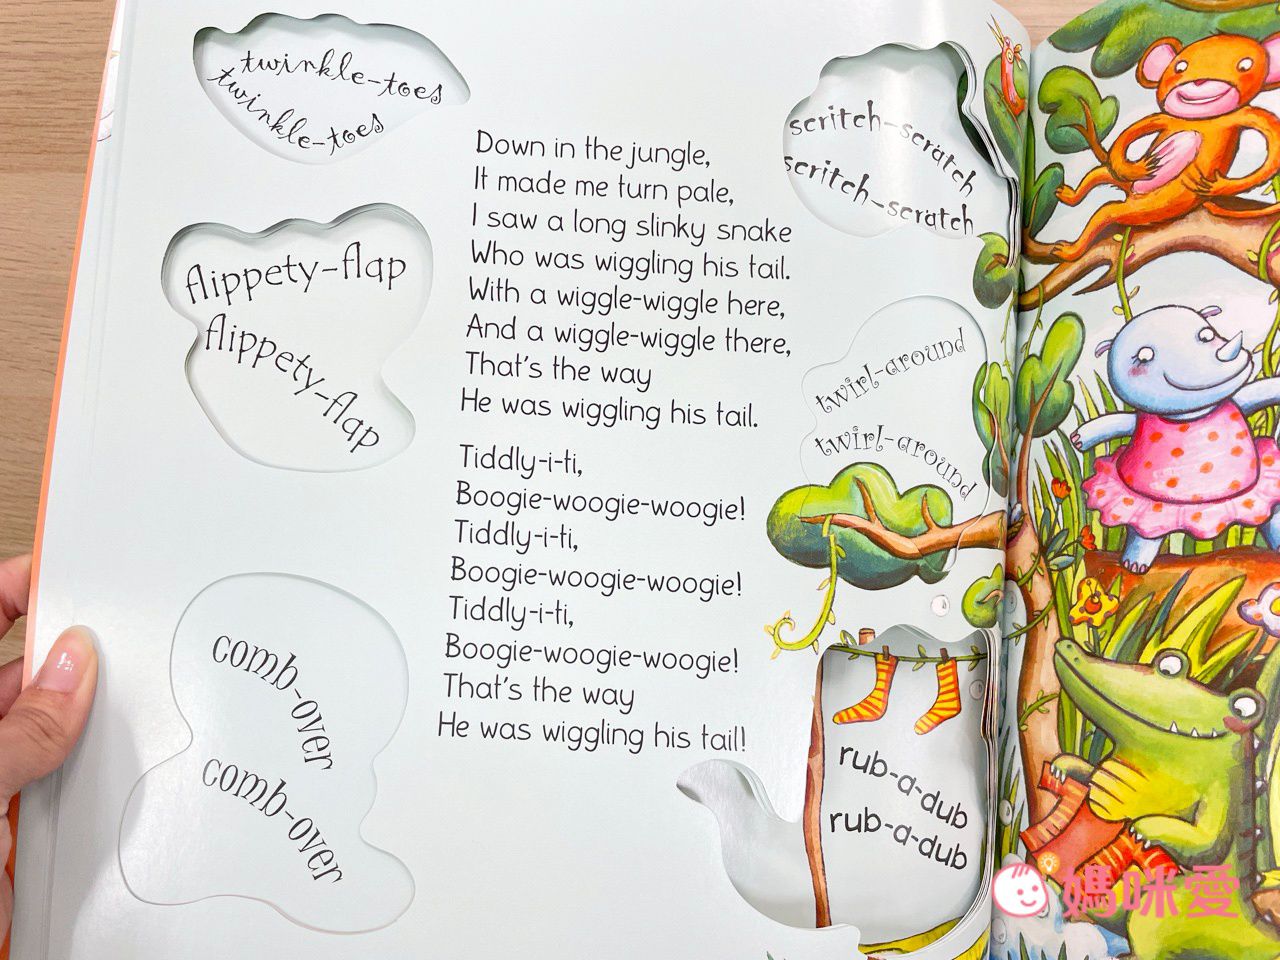 twinkle-toes
twinkle-toes
flippety-flap
flippety-flap
comb-over
comb-over
Down in the jungle,
It made me turn pale,
I saw a long slinky snake
Who was wiggling his tail.
With a wiggle-wiggle here,
And a wiggle-wiggle there,
That's the way
He was wiggling his tail.
Tiddly-i-ti,
Boogie-woogie-woogie!
Tiddly-i-ti,
Boogie-woogie-woogie!
Tiddly-i-ti,
Boogie-woogie-woogie!
That's the way
He was wiggling his tail!
scritch-scratch
scritch-scratch
twirl-around
twirl-around
rub-a-dub
rub-a-dub
媽咪愛